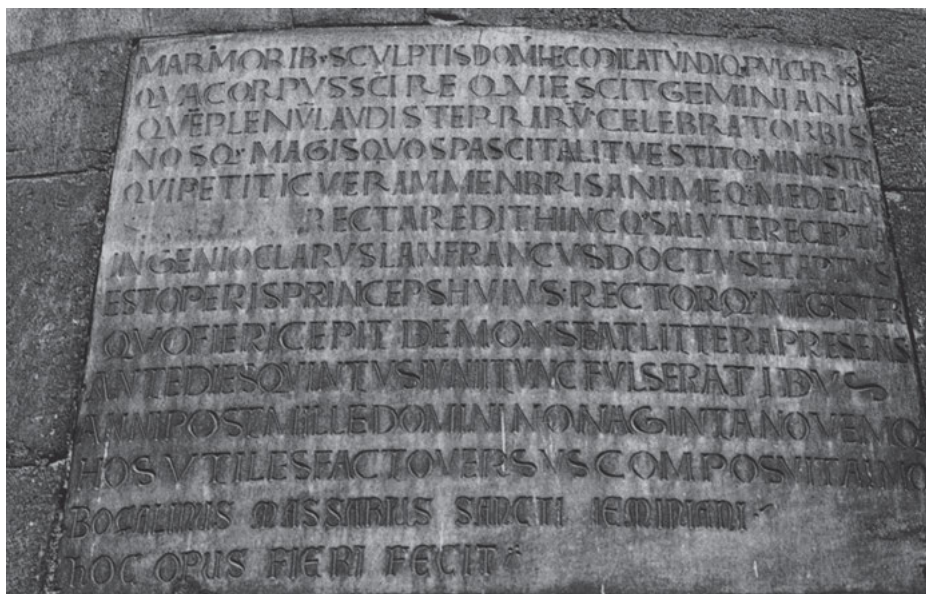 MARMORIB· SCVLPTIS DOM̄ HEC MICAT VNDIQ· PVLCHRIS
QVA CORPVS SC̄I REQVIESCIT GEMINIANI
QVĒ PLENV̄ LAVDIS TERRARV̄ CELEBRAT ORBIS
NOSQ· MAGIS QVOS PASCIT ALIT VESTITQ· MINISTRI
QVI PETIT IC VERAM MENBRIS ANIMEQ· MEDELĀ
RECTA REDIT HINCQ· SALVTE RECEPTA
INGENIO CLARVS LANFRANCVS DOCTVS ET APTVS
EST OPERIS PRINCEPS HVIVS· RECTORQ· MAGISTER
QVO FIERI CEPIT DEMONSTRAT LITTERA PRESENS
ANTE DIES QVINTVS IVNII TVNC FVLSERAT IDVS
ANNI POST MILLE DOMINI NONAGINTA NOVEMQ
HOS VTILES FACTO VERSVS COMPOSVIT AIMO
BOCALINUS MASSARIUS SANCTI IEMINIANI
hOC OPUS FIERI FECIT